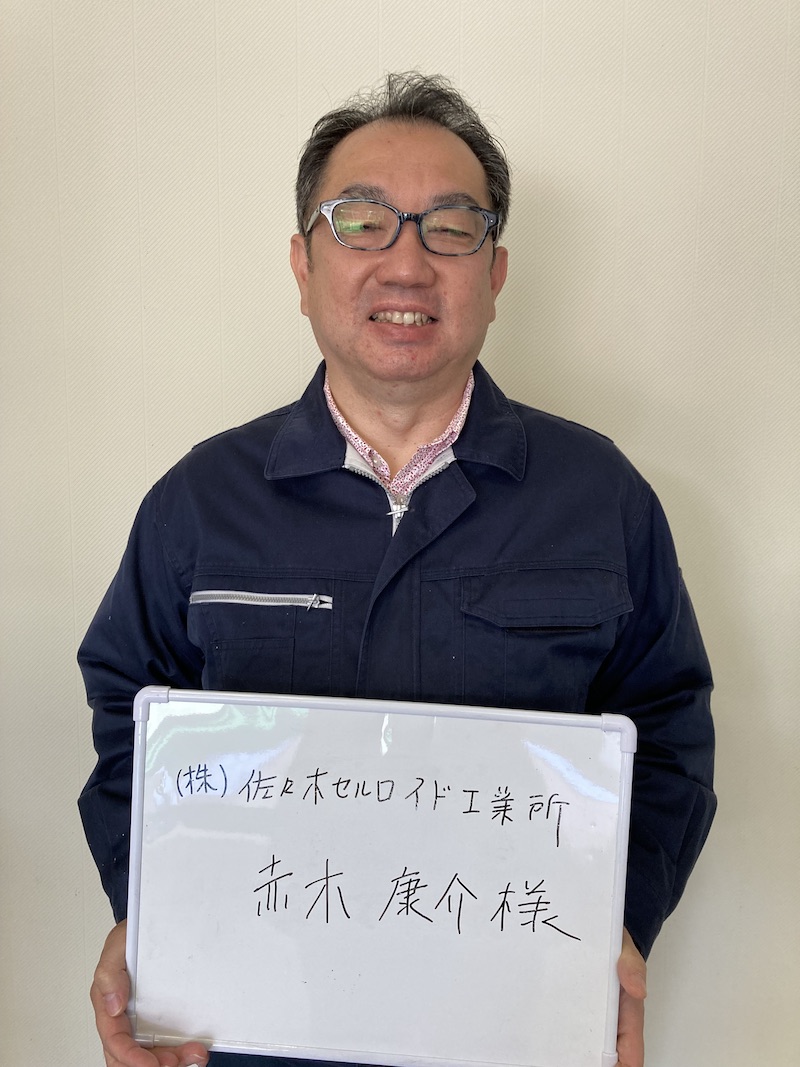 (株)佐々木セルロイド工業所
赤木 康介様